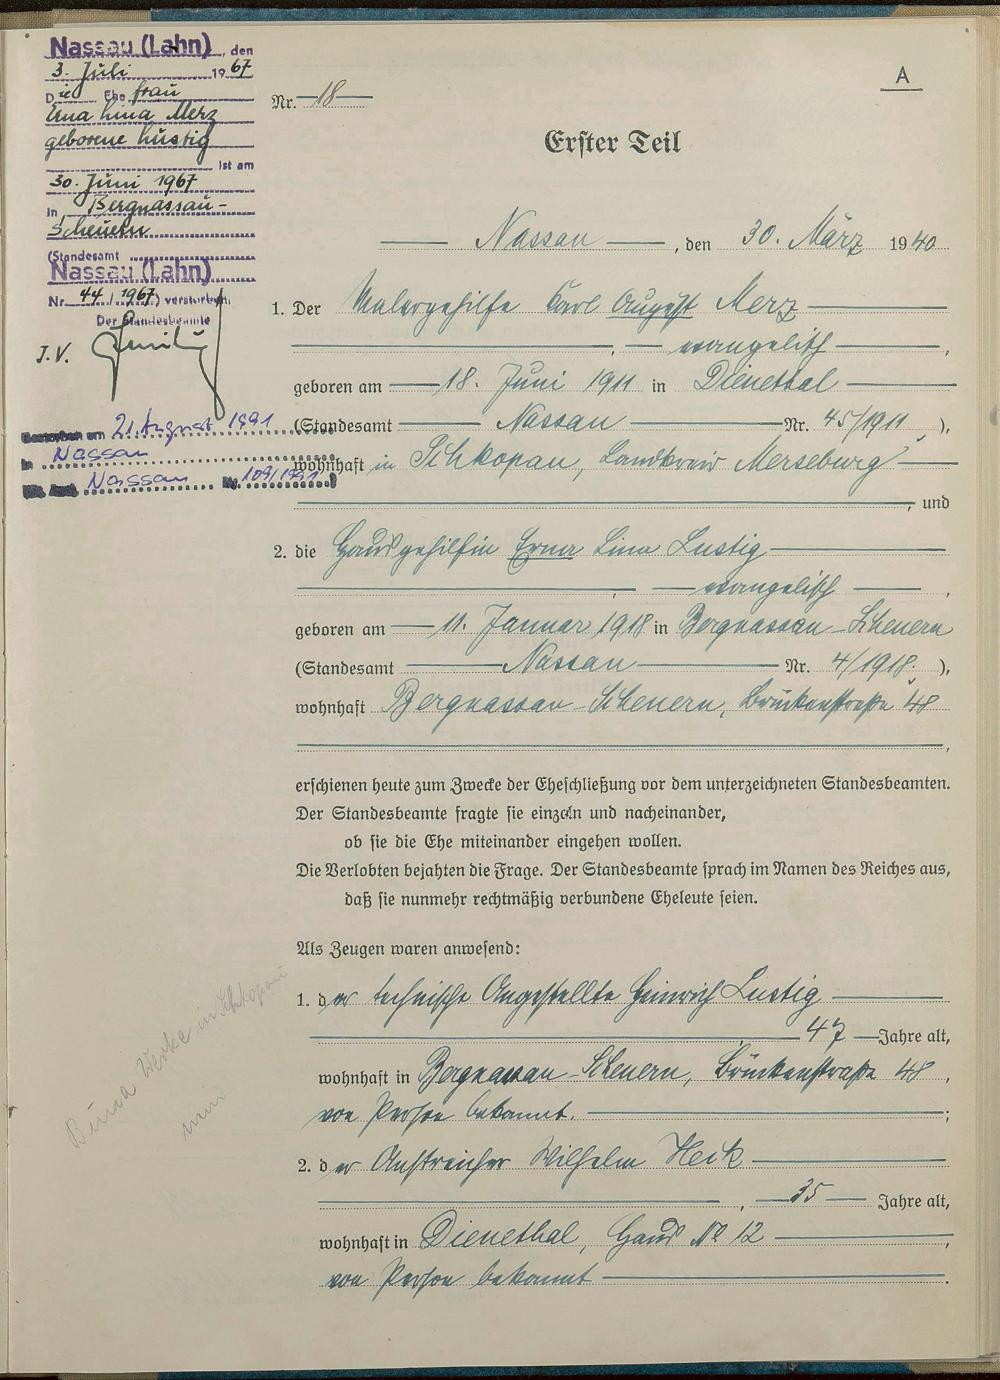 Nassau (Lahn), den
3. Juli 1967
Die Ehefrau
Erna Lina Merz
geborene Lustig
ist am
30. Juni 1967
in Bergnassau-
Scheuern
(Standesamt
Nassau (Lahn)
Nr. 44/1967) verstorben.
Der Standesbeamte
J.V.
Gestorben am 21. August 1991
in Nassau
Nassau Nr. 109/1991)
A
Nr. 18
Erster Teil
Nassau, den 30. März 1940
1. Der Malergehilfe Karl August Merz
, evangelisch,
geboren am 18. Juni 1911 in Dienethal
(Standesamt Nassau Nr. 45/1911),
wohnhaft in Schkopau, Landkreis Merseburg
, und
2. die Hausgehilfin Erna Lina Lustig
, evangelisch,
geboren am 11. Januar 1918 in Bergnassau-Scheuern
(Standesamt Nassau Nr. 4/1918),
wohnhaft Bergnassau-Scheuern, Brückenstraße 48
,
erschienen heute zum Zwecke der Eheschließung vor dem unterzeichneten Standesbeamten.
Der Standesbeamte fragte sie einzeln und nacheinander,
ob sie die Ehe miteinander eingehen wollen.
Die Verlobten bejahten die Frage. Der Standesbeamte sprach im Namen des Reiches aus,
daß sie nunmehr rechtmäßig verbundene Eheleute seien.
Als Zeugen waren anwesend:
1. der technische Angestellte Heinrich Lustig
47 Jahre alt,
wohnhaft in Bergnassau-Scheuern, Brückenstraße 48,
von Person bekannt.;
2. der Anstreicher Wilhelm Heck
, 35 Jahre alt,
wohnhaft in Dienethal, Haus No 12,
von Person bekannt.
Werke in Schkopau